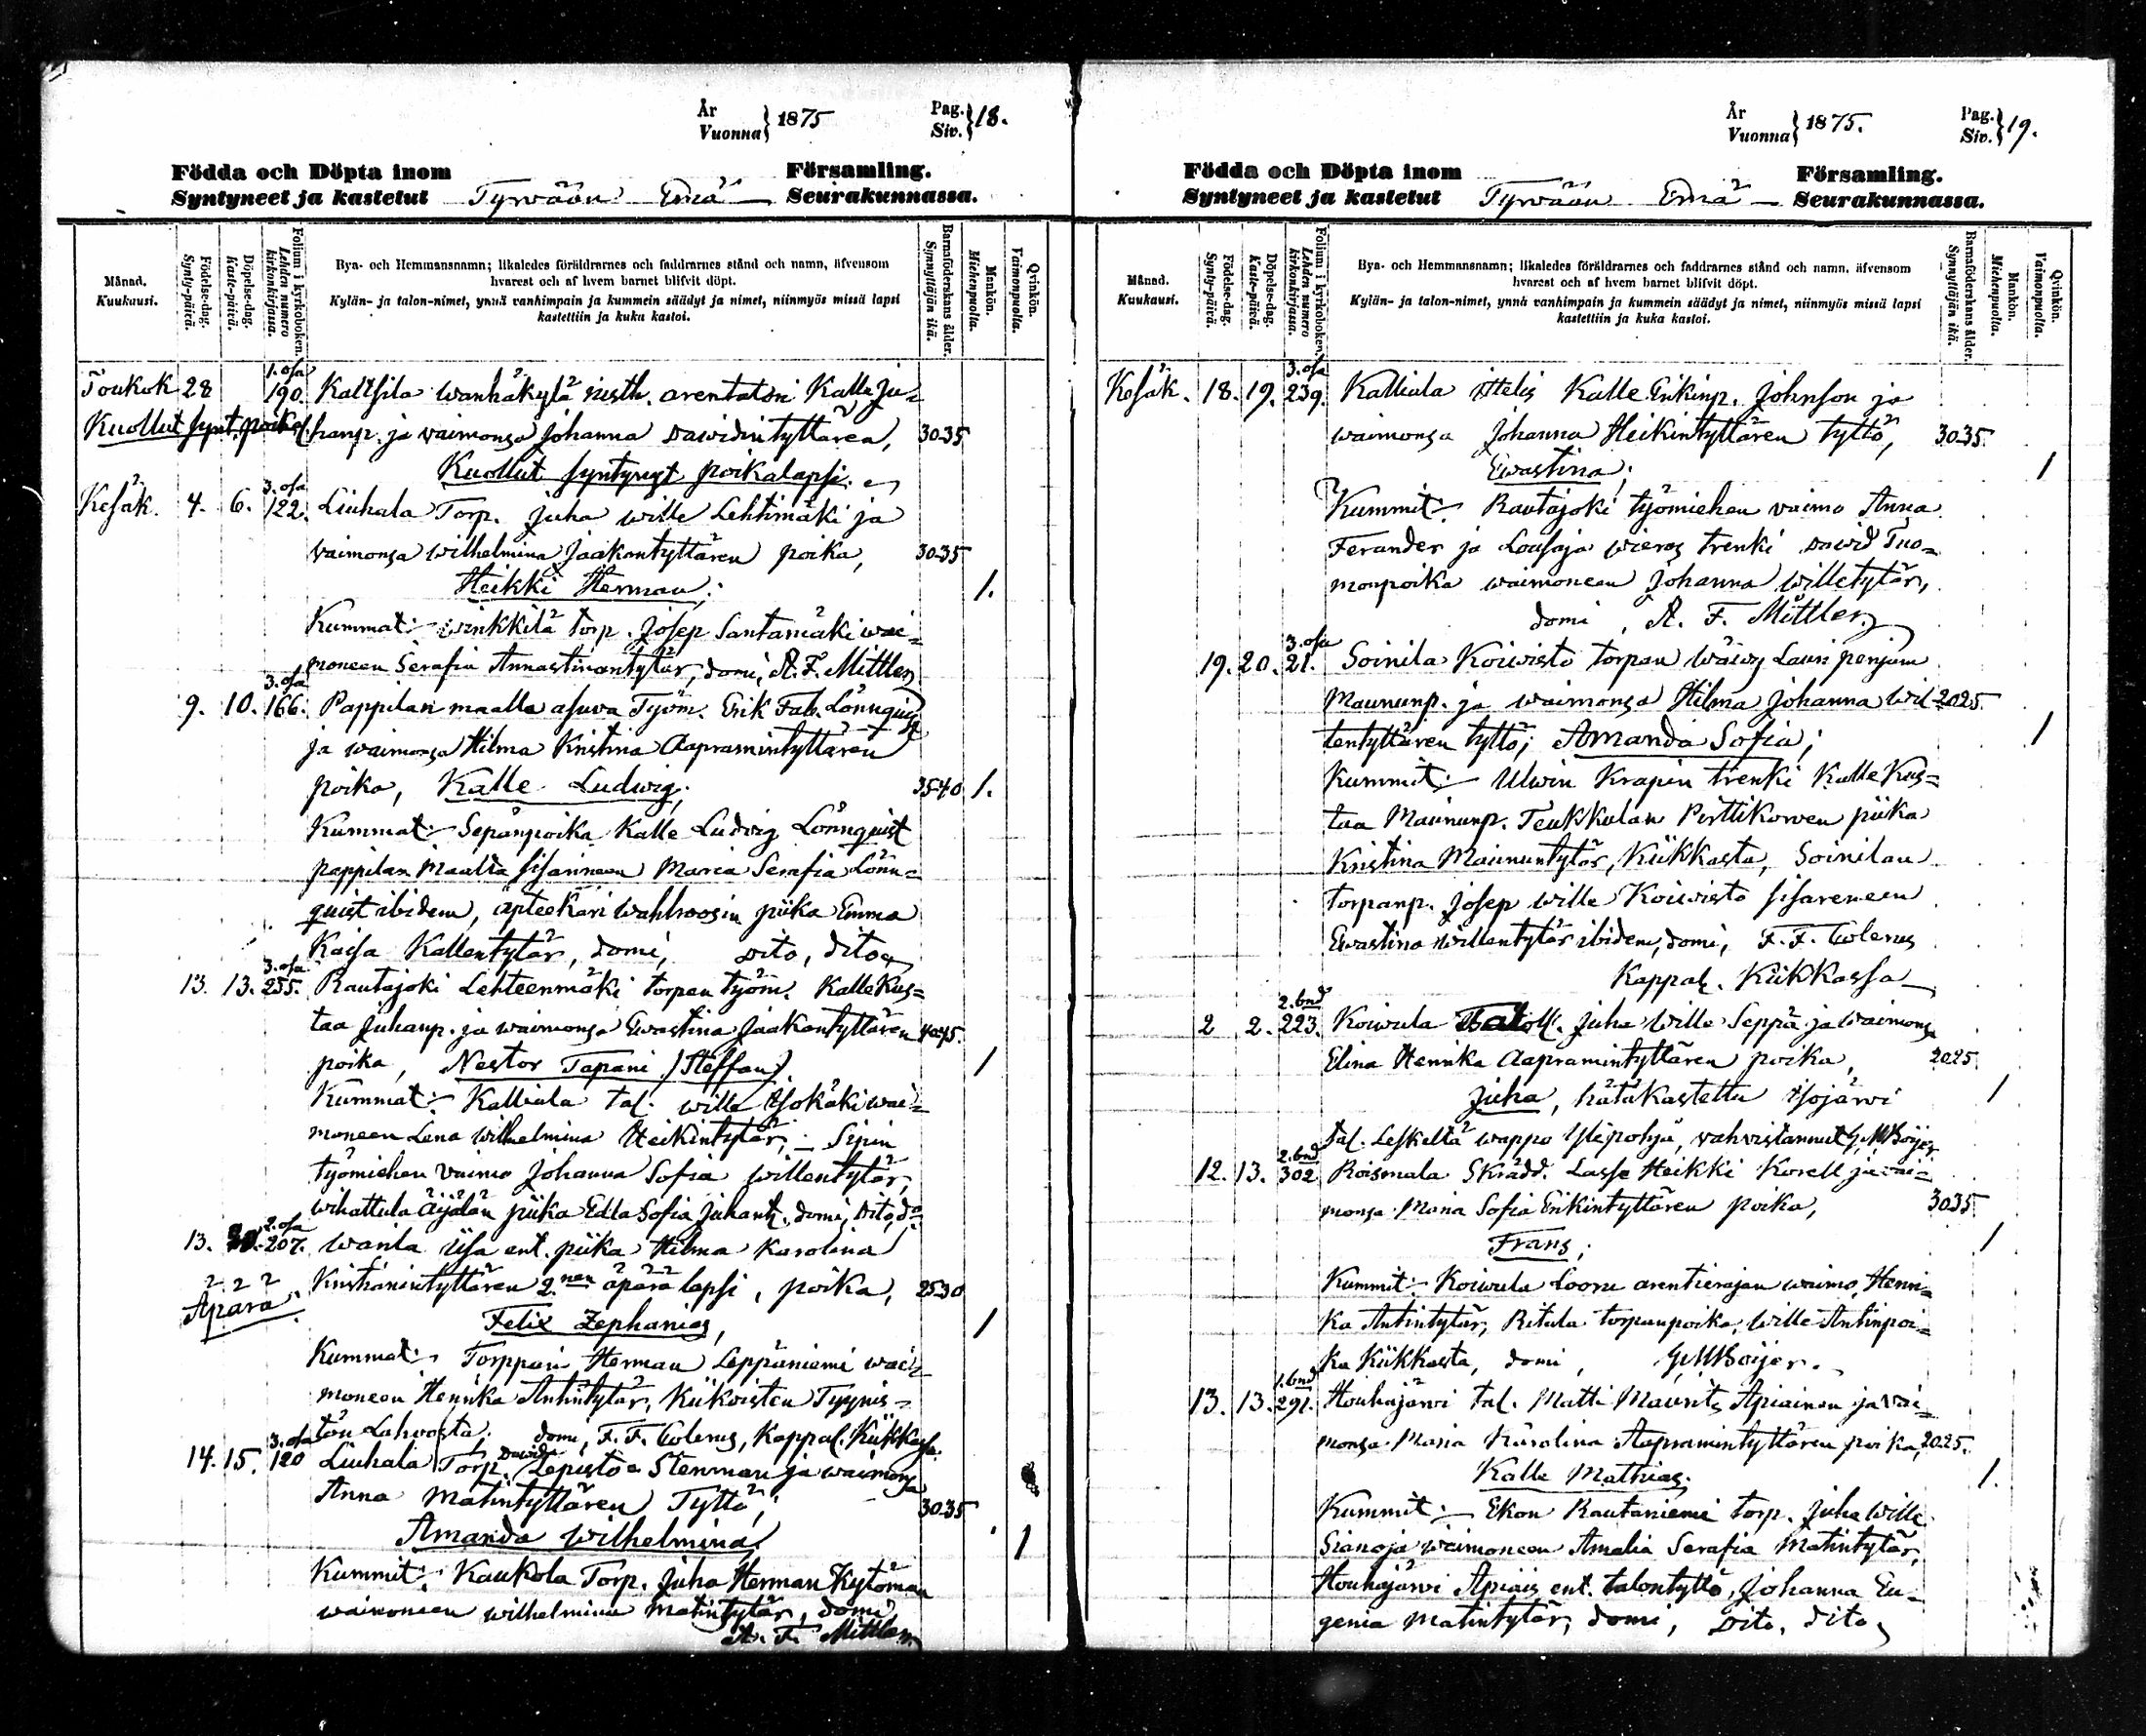 År
Vuonna } 1875
Pag.
Siv. } 18.
Födda och Döpta inom Församling.
Syntyneet ja kastetut Tyrwään Emä Seurakunnassa.
Månad.
Kuukausi.
Födelse-dag.
Synty-päivä.
Döpelse-dag.
Kaste-päivä.
Folium i kyrkoboken.
Lehden numero kirkonkirjassa.
Bya- och Hemmansnamn; likaledes föräldrarnes och faddrarnes stånd och namn, äfvensom
hvarest och af hvem barnet blifvit döpt.
Kylän- ja talon-nimet, ynnä vanhimpain ja kummein säädyt ja nimet, niinmyös missä lapsi
kastettiin ja kuka kastoi.
Barnaföderskans ålder.
Synnyttäjän ikä.
Mankön.
Miehenpuolla.
Qvinkön.
Vaimonpuolla.
1. osa
Toukok 28 190. Kaltsila wanhakylä arentatori Kalle Ju=
Kuollut synt. poikal. hanp. ja vaimonsa Johanna Dawidintyttären, 30-35
Kuollut syntynyt poikalapsi.
3. osa
Kesäk. 4. 6. 122. Liuhala Torp. Juha Wille Lehtimäki ja
vaimonsa Wilhelmina Jaakontyttären poika, 30-35
Heikki Herman; 1.
Kummat: Winkkilä torp. Josep Santamäki wai=
moneen Serafia Annastinantytär, domi, A. F. Mittler
3. osa
9. 10. 166. Pappilan maalla asuva Työm. Erik Fab. Lönnquist
ja waimonsa Hilma Kristina Aapramintyttären
poika, Kalle Ludwig; 35-40 1.
Kummat: Sepänpoika Kalle Ludvig Lönnquist
pappilan maalta sisarineen Maria Serafia Lönn=
quist ibidem, apteekari Wahlroosin piika Emma
Kaisa Kallentytär, domi, Dito, dito
3. osa
13. 13. 255. Rautajoki Lehteenmäki torpan työm. Kalle Kus=
taa Juhanp. ja waimonsa Ewastina Jaakontyttären 40-45.
poika, Nestor Tapani (Steffan) 1
Kummat: Kalliala tal. Wille Isokäki wai=
moneen Lena Wilhelmina Heikintytär, Sipin
työmiehen vaimo Johanna Sofia Willentytär,
Wihattula Äijälän piika Edla Sofia Juhant. domi, Dito, do
2. osa
13. 20. 207. Warila Iisa ent. piika Hilma Karolina
Äpärä. Kristianintyttären 2.nen äpärä lapsi, poika, 25-30
Felix Zephanias, 1
Kummat: Torppari Herman Leppäniemi wai=
moneen Henrika Antintytär, Kiikoisten Tyynis=
tön Lahvosta. domi, F. F. Colerus, Kappal. Kiikkassa.
3. osa
14. 15. 120 Liuhala Torp. David Lepistö Stenman ja waimonsa
Anna Matintyttären Tyttö; 30-35
Amanda Wilhelmina 1
Kummit: Kaukola Torp. Juha Herman Kytömaa
waimoneen Wilhelmina Matintytär, domi
A. F. Mittler
År
Vuonna } 1875.
Pag.
Siv. } 19.
Födda och Döpta inom Församling.
Syntyneet ja kastetut Tyrwään Emä Seurakunnassa.
Månad.
Kuukausi.
Födelse-dag.
Synty-päivä.
Döpelse-dag.
Kaste-päivä.
Folium i kyrkoboken.
Lehden numero kirkonkirjassa.
Bya- och Hemmansnamn; likaledes föräldrarnes och faddrarnes stånd och namn, äfvensom
hvarest och af hvem barnet blifvit döpt.
Kylän- ja talon-nimet, ynnä vanhimpain ja kummein säädyt ja nimet, niinmyös missä lapsi
kastettiin ja kuka kastoi.
Barnaföderskans ålder.
Synnyttäjän ikä.
Mankön.
Miehenpuolla.
Qvinkön.
Vaimonpuolla.
3. osa
Kesäk. 18. 19. 239. Kalliala ittelis Kalle Erkinp. Johnson ja
waimonsa Johanna Heikintyttären tyttö, 30-35.
Ewastina; 1
Kummit: Rautajoki työmiehen vaimo Anna
Ferander ja Lousaja wieras trenki Dawid Tuo=
monpoika waimoneen Johanna Willetytär,
domi, A. F. Mittler
3. osa
19. 20. 21. Soinila Koiwisto torpan wäwy Lauri penjam
Maununp. ja waimonsa Hilma Johanna Wil= 20-25.
lentyttären tyttö; Amanda Sofia; 1
Kummit: Ulwin Krapin trenki Kalle Kus=
taa Maununp. Teukkulan Pirttikorwen piika
Kristina Maununtytär, Kiikkasta, Soinilan
torpanp. Josep Wille Koiwisto sisareneen
Ewastina Willentytär ibidem, domi, F. F. Colerus
Kappal. Kiikkassa
2. bnd
2 2. 223. Koiwula Juha Wille Seppä ja waimonsa
Elina Henrika Aapramintyttären poika, 20-25.
Juha, hätäkastettu Isojärwi 1
tal. Leskeltä wappo Ylipohja, vahvistannut G. M. Boijer
2. bnd
12. 13. 302 Roismala Skrädd. Lasse Heikki Korell ja wai=
monsa Maria Sofia Erikintyttären poika, 30-35
Frans; 1
Kummit: Koiwula Looru arentierajan waimo, Henri=
ka Antintytär, Ritala torpanpoika, Wille Antinpoi=
ka Kiikkasta, domi, G. M. Boijer.
1. bnd
13. 13. 291. Houhajärwi tal. Matti Maurits Apiainen ja wai=
monsa Maria Karolina Aapramintyttären poika, 20-25.
Kalle Mathias; 1.
Kummit: Ekon Rautaniemi torp. Juha Wille
Sianoja waimoneen Amalia Serafia Matintytär,
Houhajärwi Apiais ent. talontyttö, Johanna Eu=
genia Matintytär, domi, Dito, dito